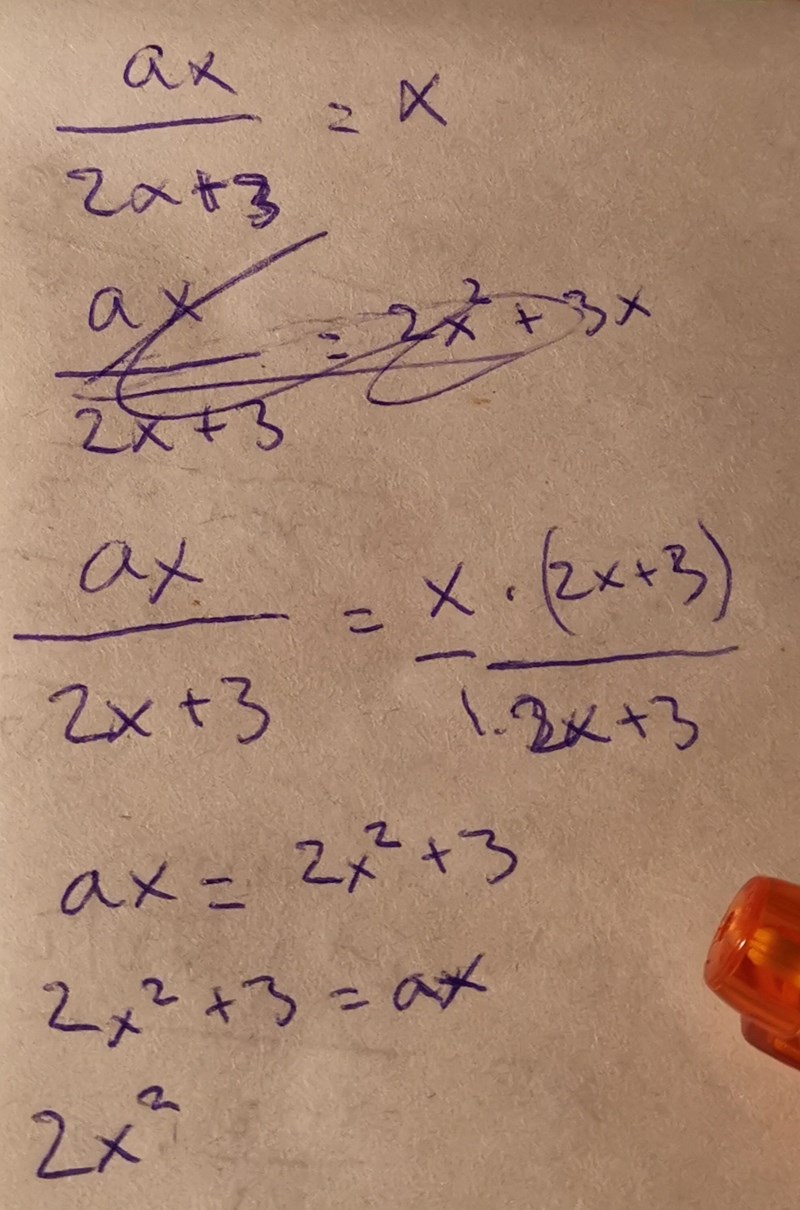 ax / 2x+3 = x
ax / 2x+3 = 2x² + 3x
ax / 2x+3 = x · (2x+3) / 1 · 2x+3
ax = 2x² + 3
2x² + 3 = ax
2x²